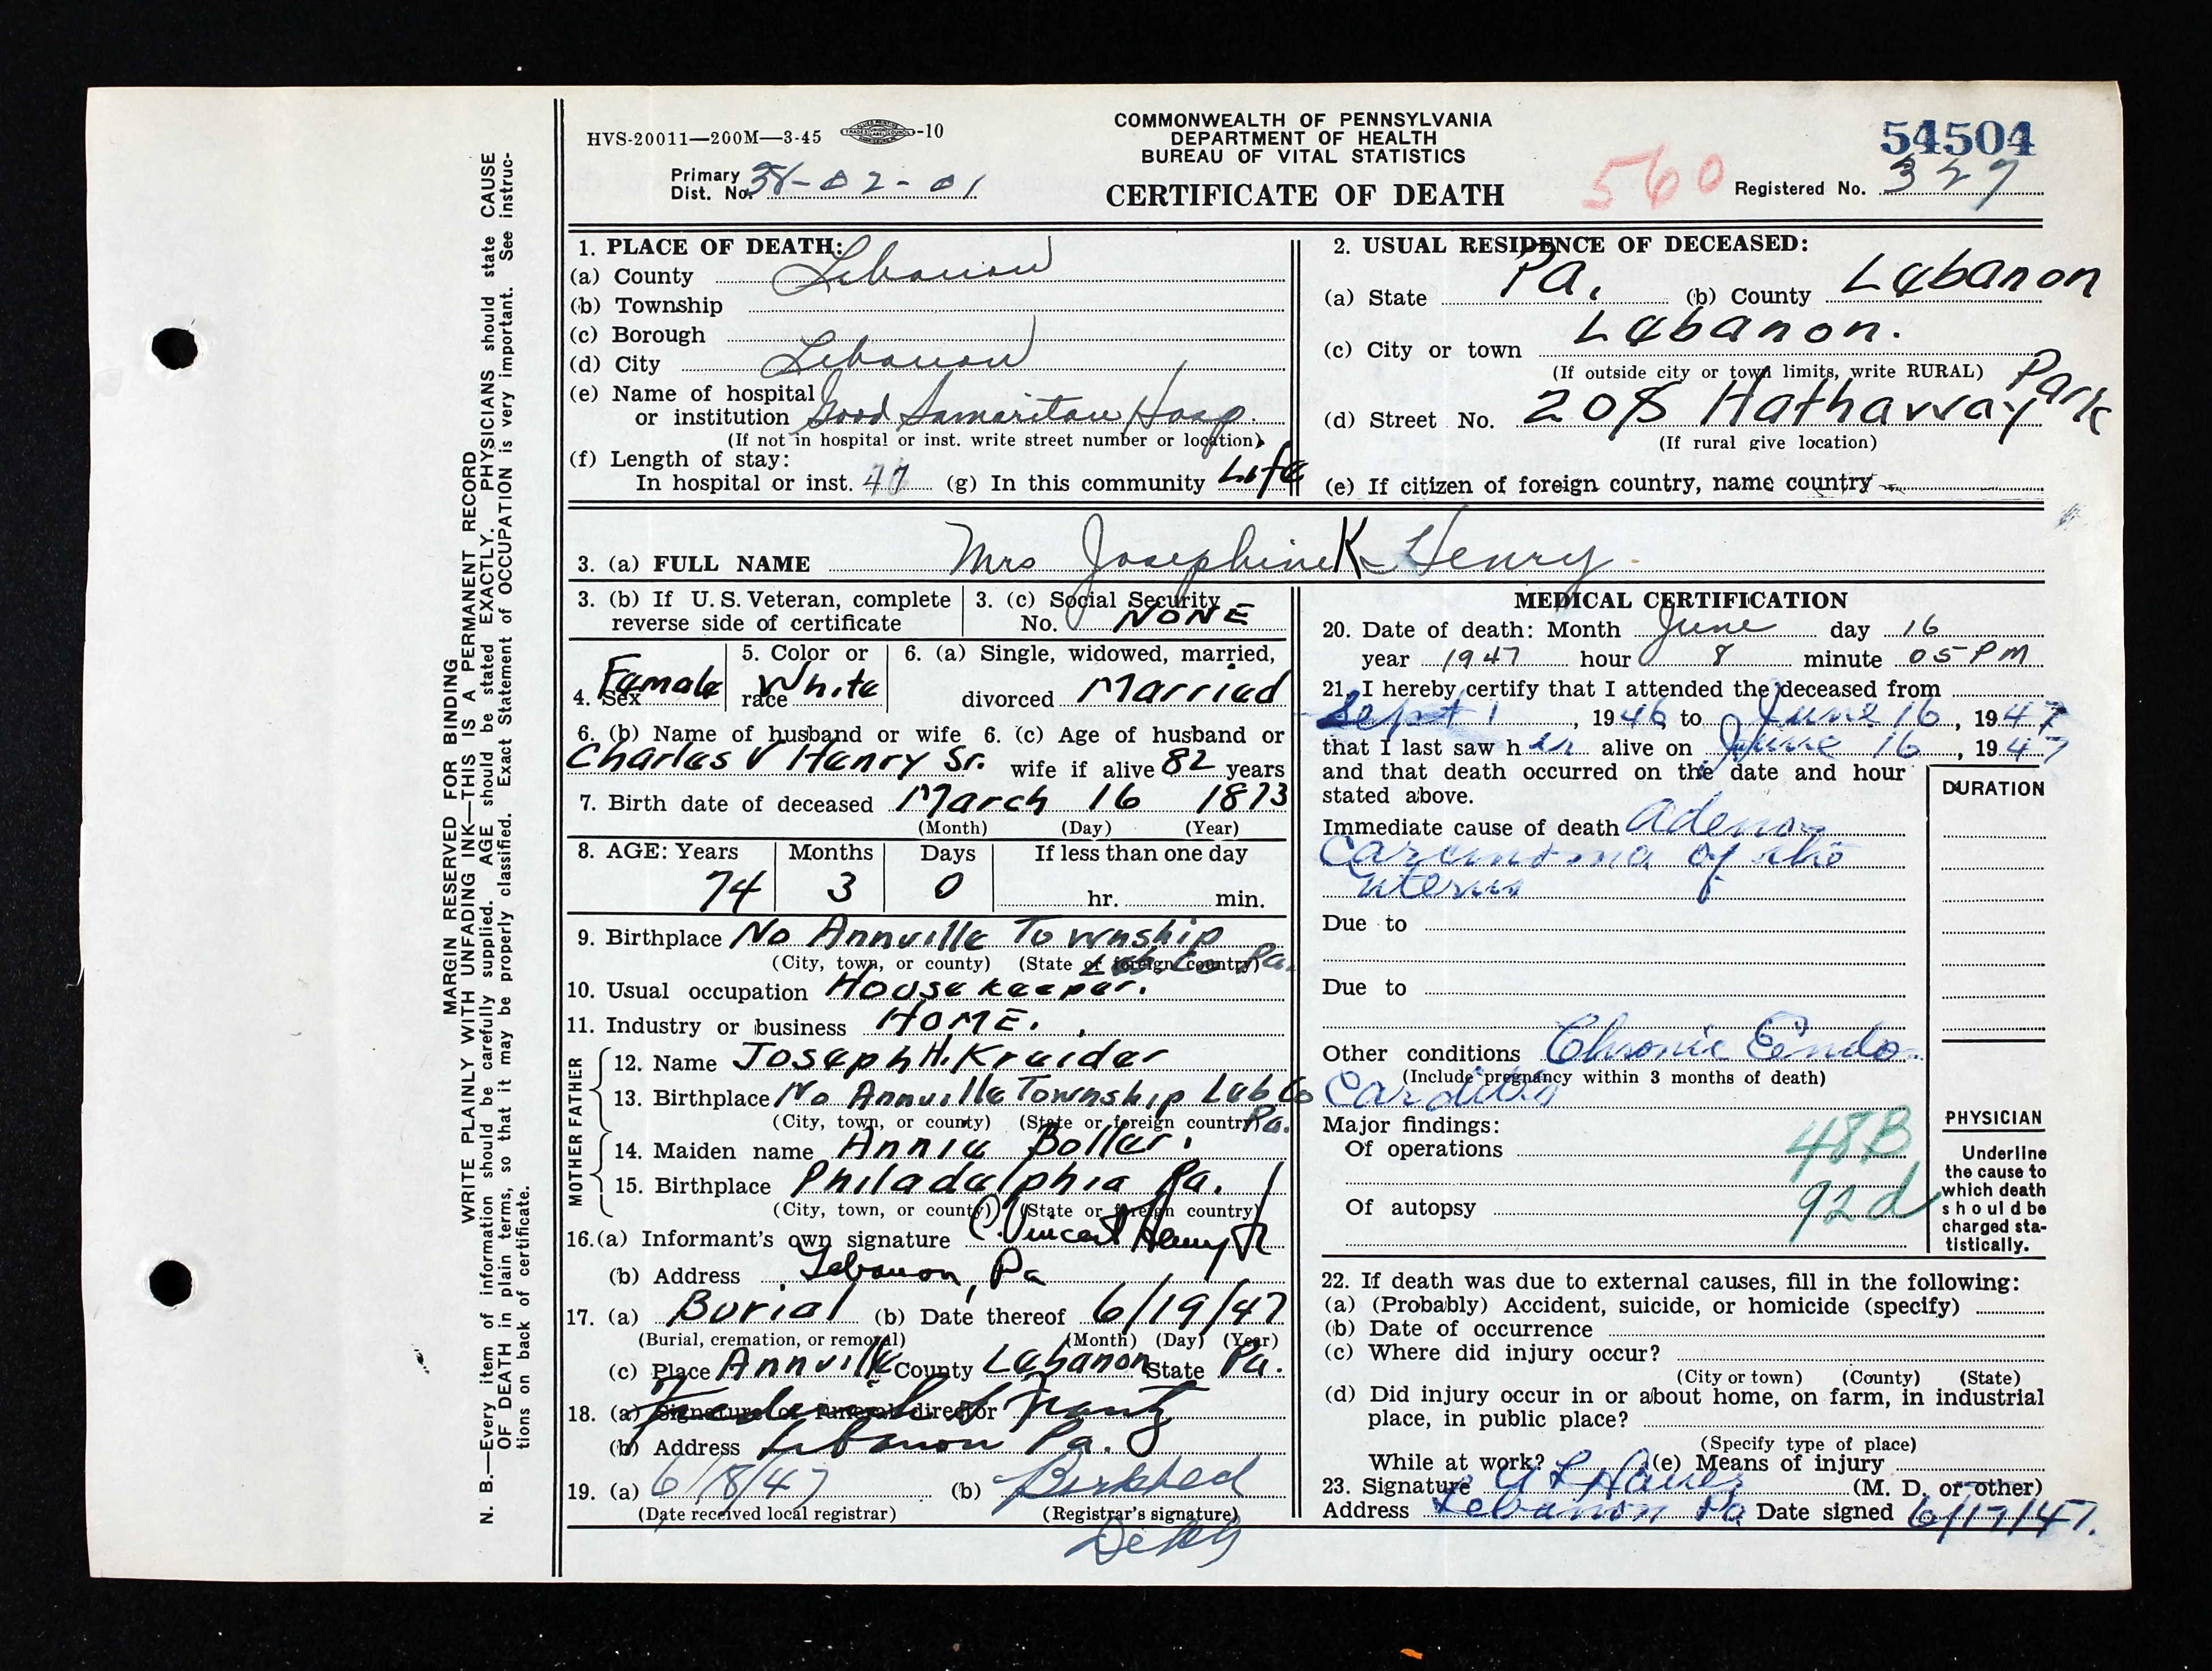 HVS-20011—200M—3-45 -10
COMMONWEALTH OF PENNSYLVANIA
DEPARTMENT OF HEALTH
BUREAU OF VITAL STATISTICS
CERTIFICATE OF DEATH
Primary
Dist. No. 38-02-01
560
54504
Registered No. 327
MARGIN RESERVED FOR BINDING
WRITE PLAINLY WITH UNFADING INK—THIS IS A PERMANENT RECORD
N. B.—Every item of information should be carefully supplied. AGE should be stated EXACTLY. PHYSICIANS should state CAUSE
OF DEATH in plain terms, so that it may be properly classified. Exact Statement of OCCUPATION is very important. See instruc-
tions on back of certificate.
1. PLACE OF DEATH:
(a) County Lebanon
(b) Township
(c) Borough
(d) City Lebanon
(e) Name of hospital
or institution Good Samaritan Hosp.
(If not in hospital or inst. write street number or location)
(f) Length of stay:
In hospital or inst. 47 (g) In this community Life
2. USUAL RESIDENCE OF DECEASED:
(a) State Pa. (b) County Lebanon
(c) City or town Lebanon.
(If outside city or town limits, write RURAL)
(d) Street No. 208 Hathaway Park
(If rural give location)
(e) If citizen of foreign country, name country
3. (a) FULL NAME Mrs Josephine K Henry
3. (b) If U. S. Veteran, complete
reverse side of certificate
3. (c) Social Security
No. NONE
4. Sex Female
5. Color or
race White
6. (a) Single, widowed, married,
divorced Married
6. (b) Name of husband or wife 6. (c) Age of husband or
Charles V Henry Sr. wife if alive 82 years
7. Birth date of deceased March 16 1873
(Month) (Day) (Year)
8. AGE: Years Months Days If less than one day
74 3 0 hr. min.
9. Birthplace No Annville Township
(City, town, or county) (State or foreign country) Leb Co Pa.
10. Usual occupation Housekeeper.
11. Industry or business HOME.
FATHER
12. Name Joseph H. Kreider
13. Birthplace No Annville Township Leb Co
(City, town, or county) (State or foreign country) Pa.
MOTHER
14. Maiden name Annie Boller.
15. Birthplace Philadelphia Pa.
(City, town, or county) (State or foreign country)
16.(a) Informant's own signature C. Vincent Henry Jr
(b) Address Lebanon, Pa
17. (a) Burial (b) Date thereof 6/19/47
(Burial, cremation, or removal) (Month) (Day) (Year)
(c) Place Annville County Lebanon State Pa.
18. (a) Signature of funeral director Frantz
(b) Address Lebanon Pa.
19. (a) 6/18/47 (b)
(Date received local registrar) (Registrar's signature)
MEDICAL CERTIFICATION
20. Date of death: Month June day 16
year 1947 hour 8 minute 05 PM
21. I hereby certify that I attended the deceased from
Sept 1, 1946 to June 16, 1947
that I last saw her alive on June 16, 1947
and that death occurred on the date and hour
stated above.
DURATION
Immediate cause of death Adeno-
carcinoma of the
uterus
Due to
Due to
Other conditions Chronic Endo-
(Include pregnancy within 3 months of death)
carditis
Major findings:
Of operations 48B
Of autopsy 92d
PHYSICIAN
Underline
the cause to
which death
should be
charged sta-
tistically.
22. If death was due to external causes, fill in the following:
(a) (Probably) Accident, suicide, or homicide (specify)
(b) Date of occurrence
(c) Where did injury occur?
(City or town) (County) (State)
(d) Did injury occur in or about home, on farm, in industrial
place, in public place?
(Specify type of place)
While at work? (e) Means of injury
23. Signature (M. D. or other)
Address Lebanon Pa Date signed 6/17/47.